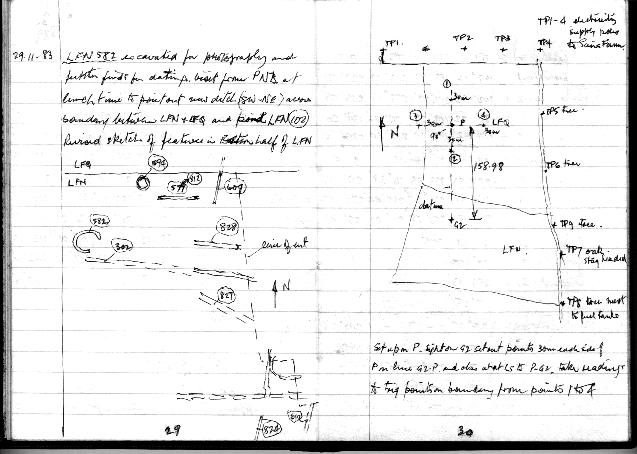 29.11.83 LFN 582 excavated for photography and
further finds for dating. visit from PNB at
lunch time to point out new ditch (SW-NE) across
boundary between LFN & LFQ and LFN (102)
Revised sketch of features in half of LFN
LFQ
LFN
592
577
812
607
582
302
828
line of
N
827
824
29
TP1-4 electricity
supply poles
to Farm
TP1.
TP2
TP3
TP4
1
30m
3
30m
P
4
LFQ
30m
90°
30m
2
N
158.98
datum
G2
LFN.
TP5 tree.
TP6 tree
TP9 tree.
TP7 oak.
stag headed
TP8 tree next
to fuel tanks
Set up on P. sight on G2 set out points 30m each side of
P on line G2-P. and also at to P-G2, take readings
to trig position boundary from points 1 to 4
30